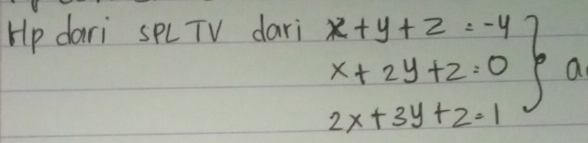 Hp dari SPLTV dari x+y+z = -4
x+2y+z=0
2x+3y+z=1